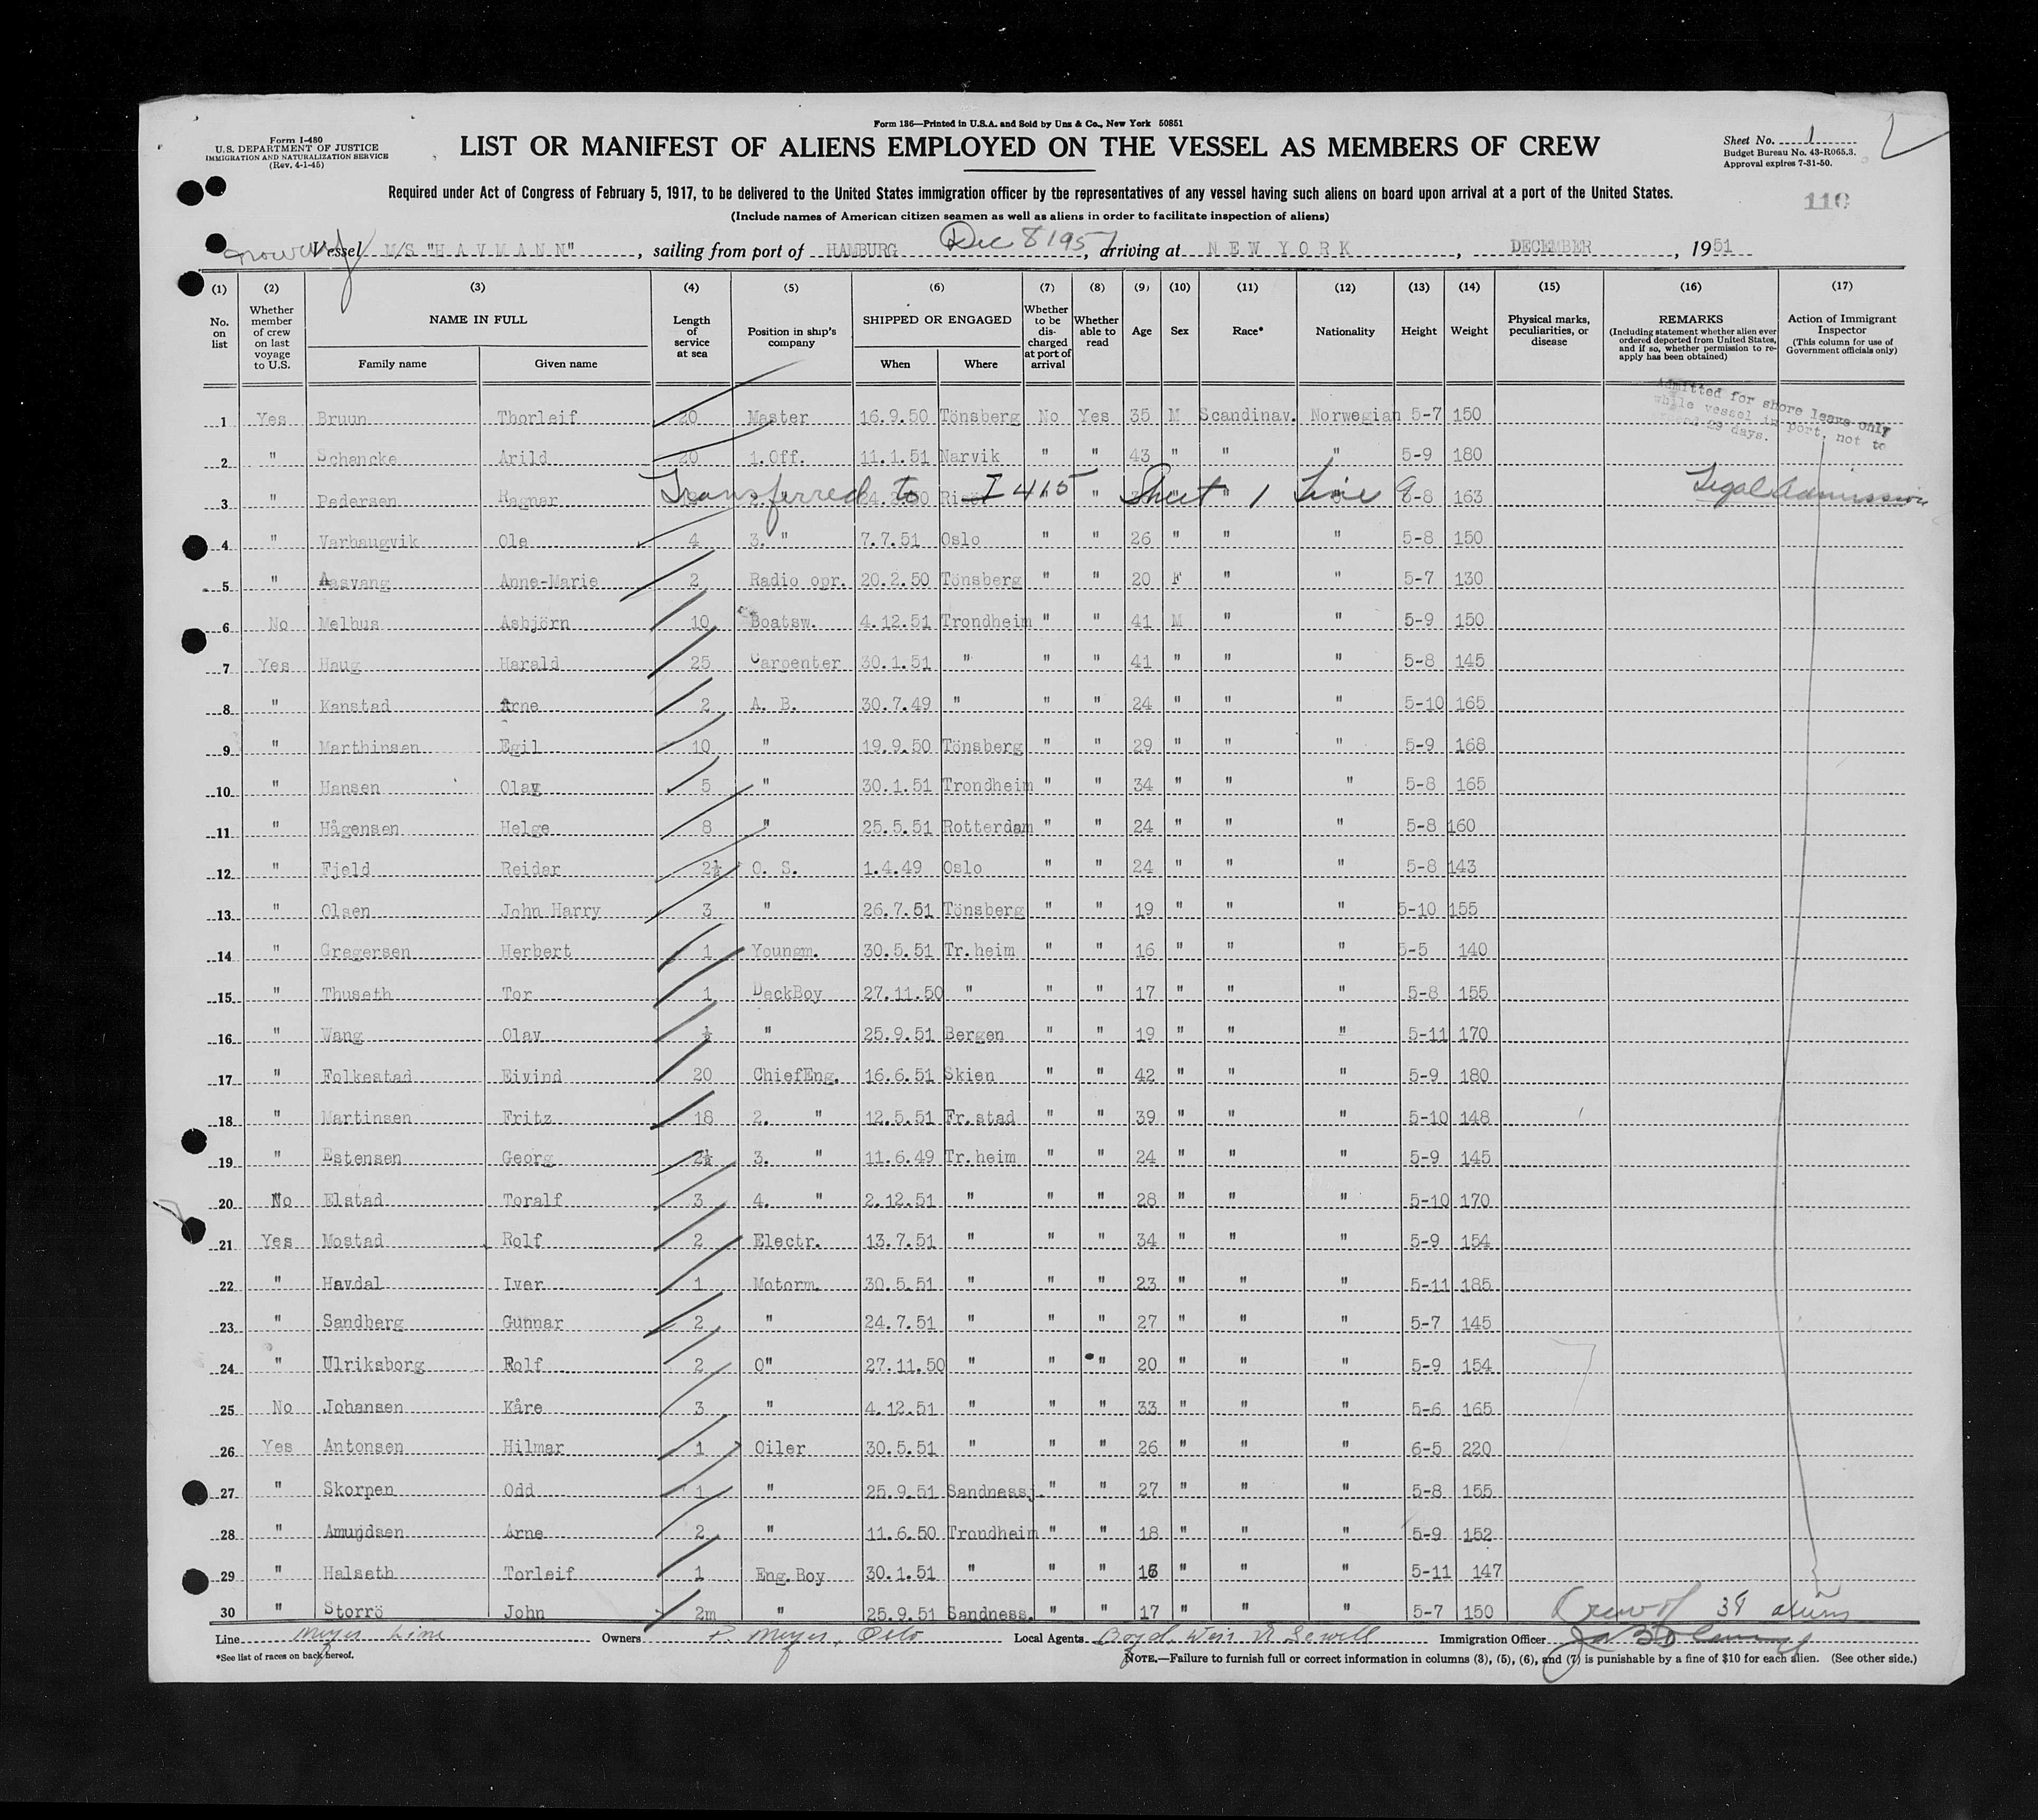 Form 186—Printed in U.S.A. and Sold by Unz & Co., New York 50851
Form I-480
U.S. DEPARTMENT OF JUSTICE
IMMIGRATION AND NATURALIZATION SERVICE
(Rev. 4-1-45)
LIST OR MANIFEST OF ALIENS EMPLOYED ON THE VESSEL AS MEMBERS OF CREW
Sheet No. 1
Budget Bureau No. 43-R065.3.
Approval expires 7-31-50.
Required under Act of Congress of February 5, 1917, to be delivered to the United States immigration officer by the representatives of any vessel having such aliens on board upon arrival at a port of the United States.
(Include names of American citizen seamen as well as aliens in order to facilitate inspection of aliens)
110
Vessel M/S "HAVMANN", sailing from port of HAMBURG Dec 8 1951, arriving at NEW YORK, DECEMBER, 1951
(1) (2) (3) (4) (5) (6) (7) (8) (9) (10) (11) (12) (13) (14) (15) (16) (17)
No. on list
Whether member of crew on last voyage to U.S.
NAME IN FULL
Family name Given name
Length of service at sea
Position in ship's company
SHIPPED OR ENGAGED
When Where
Whether to be discharged at port of arrival
Whether able to read
Age Sex Race* Nationality Height Weight
Physical marks, peculiarities, or disease
REMARKS
(Including statement whether alien ever ordered deported from United States, and if so, whether permission to reapply has been obtained)
Action of Immigrant Inspector
(This column for use of Government officials only)
Admitted for shore leave only
while vessel in port, not to
29 days.
1 Yes Bruun Thorleif 20 Master 16.9.50 Tönsberg No Yes 35 M Scandinav. Norwegian 5-7 150
2 " Schancke Arild 20 1.Off. 11.1.51 Narvik " " 43 " " " 5-9 180
3 " Pedersen Ragnar Transferred to I 415 Sheet 1 Line 9 -8 163 Legal Admission
4 " Varhaugvik Ole 4 3. " 7.7.51 Oslo " " 26 " " " 5-8 150
5 " Aasvang Anne-Marie 2 Radio opr. 20.2.50 Tönsberg " " 20 F " " 5-7 130
6 No Melhus Asbjörn 10 Boatsw. 4.12.51 Trondheim " " 41 M " " 5-9 150
7 Yes Haug Harald 25 Carpenter 30.1.51 " " " 41 " " " 5-8 145
8 " Kanstad Arne 2 A. B. 30.7.49 " " " 24 " " " 5-10 165
9 " Marthinsen Egil 10 " 19.9.50 Tönsberg " " 29 " " " 5-9 168
10 " Hansen Olav 5 " 30.1.51 Trondheim " " 34 " " " 5-8 165
11 " Hågensen Helge 8 " 25.5.51 Rotterdam " " 24 " " " 5-8 160
12 " Fjeld Reidar 2½ O. S. 1.4.49 Oslo " " 24 " " " 5-8 143
13 " Olsen John Harry 3 " 26.7.51 Tönsberg " " 19 " " " 5-10 155
14 " Gregersen Herbert 1 Youngm. 30.5.51 Tr.heim " " 16 " " " 5-5 140
15 " Thuseth Tor 1 DeckBoy 27.11.50 " " " 17 " " " 5-8 155
16 " Wang Olav ½ " 25.9.51 Bergen " " 19 " " " 5-11 170
17 " Folkestad Eivind 20 ChiefEng. 16.6.51 Skien " " 42 " " " 5-9 180
18 " Martinsen Fritz 18 2. " 12.5.51 Fr.stad " " 39 " " " 5-10 148
19 " Estensen Georg 2½ 3. " 11.6.49 Tr.heim " " 24 " " " 5-9 145
20 No Elstad Toralf 3 4. " 2.12.51 " " " 28 " " " 5-10 170
21 Yes Mostad Rolf 2 Electr. 13.7.51 " " " 34 " " " 5-9 154
22 " Havdal Iver 1 Motorm. 30.5.51 " " " 23 " " " 5-11 185
23 " Sandberg Gunnar 2 " 24.7.51 " " " 27 " " " 5-7 145
24 " Ulriksborg Rolf 2 O" 27.11.50 " " " 20 " " " 5-9 154
25 No Johansen Kåre 3 " 4.12.51 " " " 33 " " " 5-6 165
26 Yes Antonsen Hilmar 1 Oiler 30.5.51 " " " 26 " " " 6-5 220
27 " Skorpen Odd 1 " 25.9.51 Sandnessj. " " 27 " " " 5-8 155
28 " Amundsen Arne 2 " 11.6.50 Trondheim " " 18 " " " 5-9 152
29 " Halseth Torleif 1 Eng.Boy 30.1.51 " " " 16 " " " 5-11 147
30 " Storrö John 2m " 25.9.51 Sandness. " " 17 " " " 5-7 150
Crew of 38 aliens
Line Meyer Line Owners P. Meyer, Oslo Local Agents Boyd, Weir & Sewell Immigration Officer
*See list of races on back hereof.
NOTE.—Failure to furnish full or correct information in columns (3), (5), (6), and (7) is punishable by a fine of $10 for each alien. (See other side.)